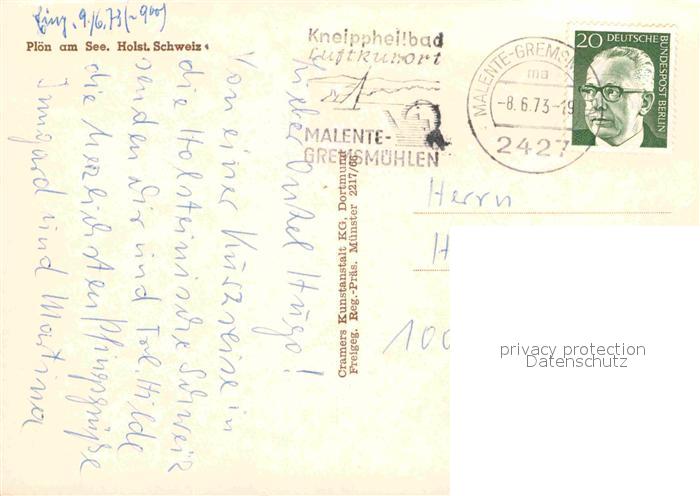 Eing. 9./6.73 (~900)
Plön am See. Holst. Schweiz
Kneippheilbad
Luftkurort
MALENTE-
GREMSMÜHLEN
MALENTE-GREMSM
ma
-8.6.73-19
2427
20 DEUTSCHE BUNDESPOST BERLIN
Lieber Onkel Hugo!
Von einer Kurzreise in
die Holsteinische Schweiz
senden wir und Frl. Hilde
die herzlichsten Pfingstgrüße
Irmgard und Martina
Cramers Kunstanstalt KG, Dortmund
Freigeg. Reg.-Präs. Münster 2217/66
Herrn
H
100
privacy protection
Datenschutz